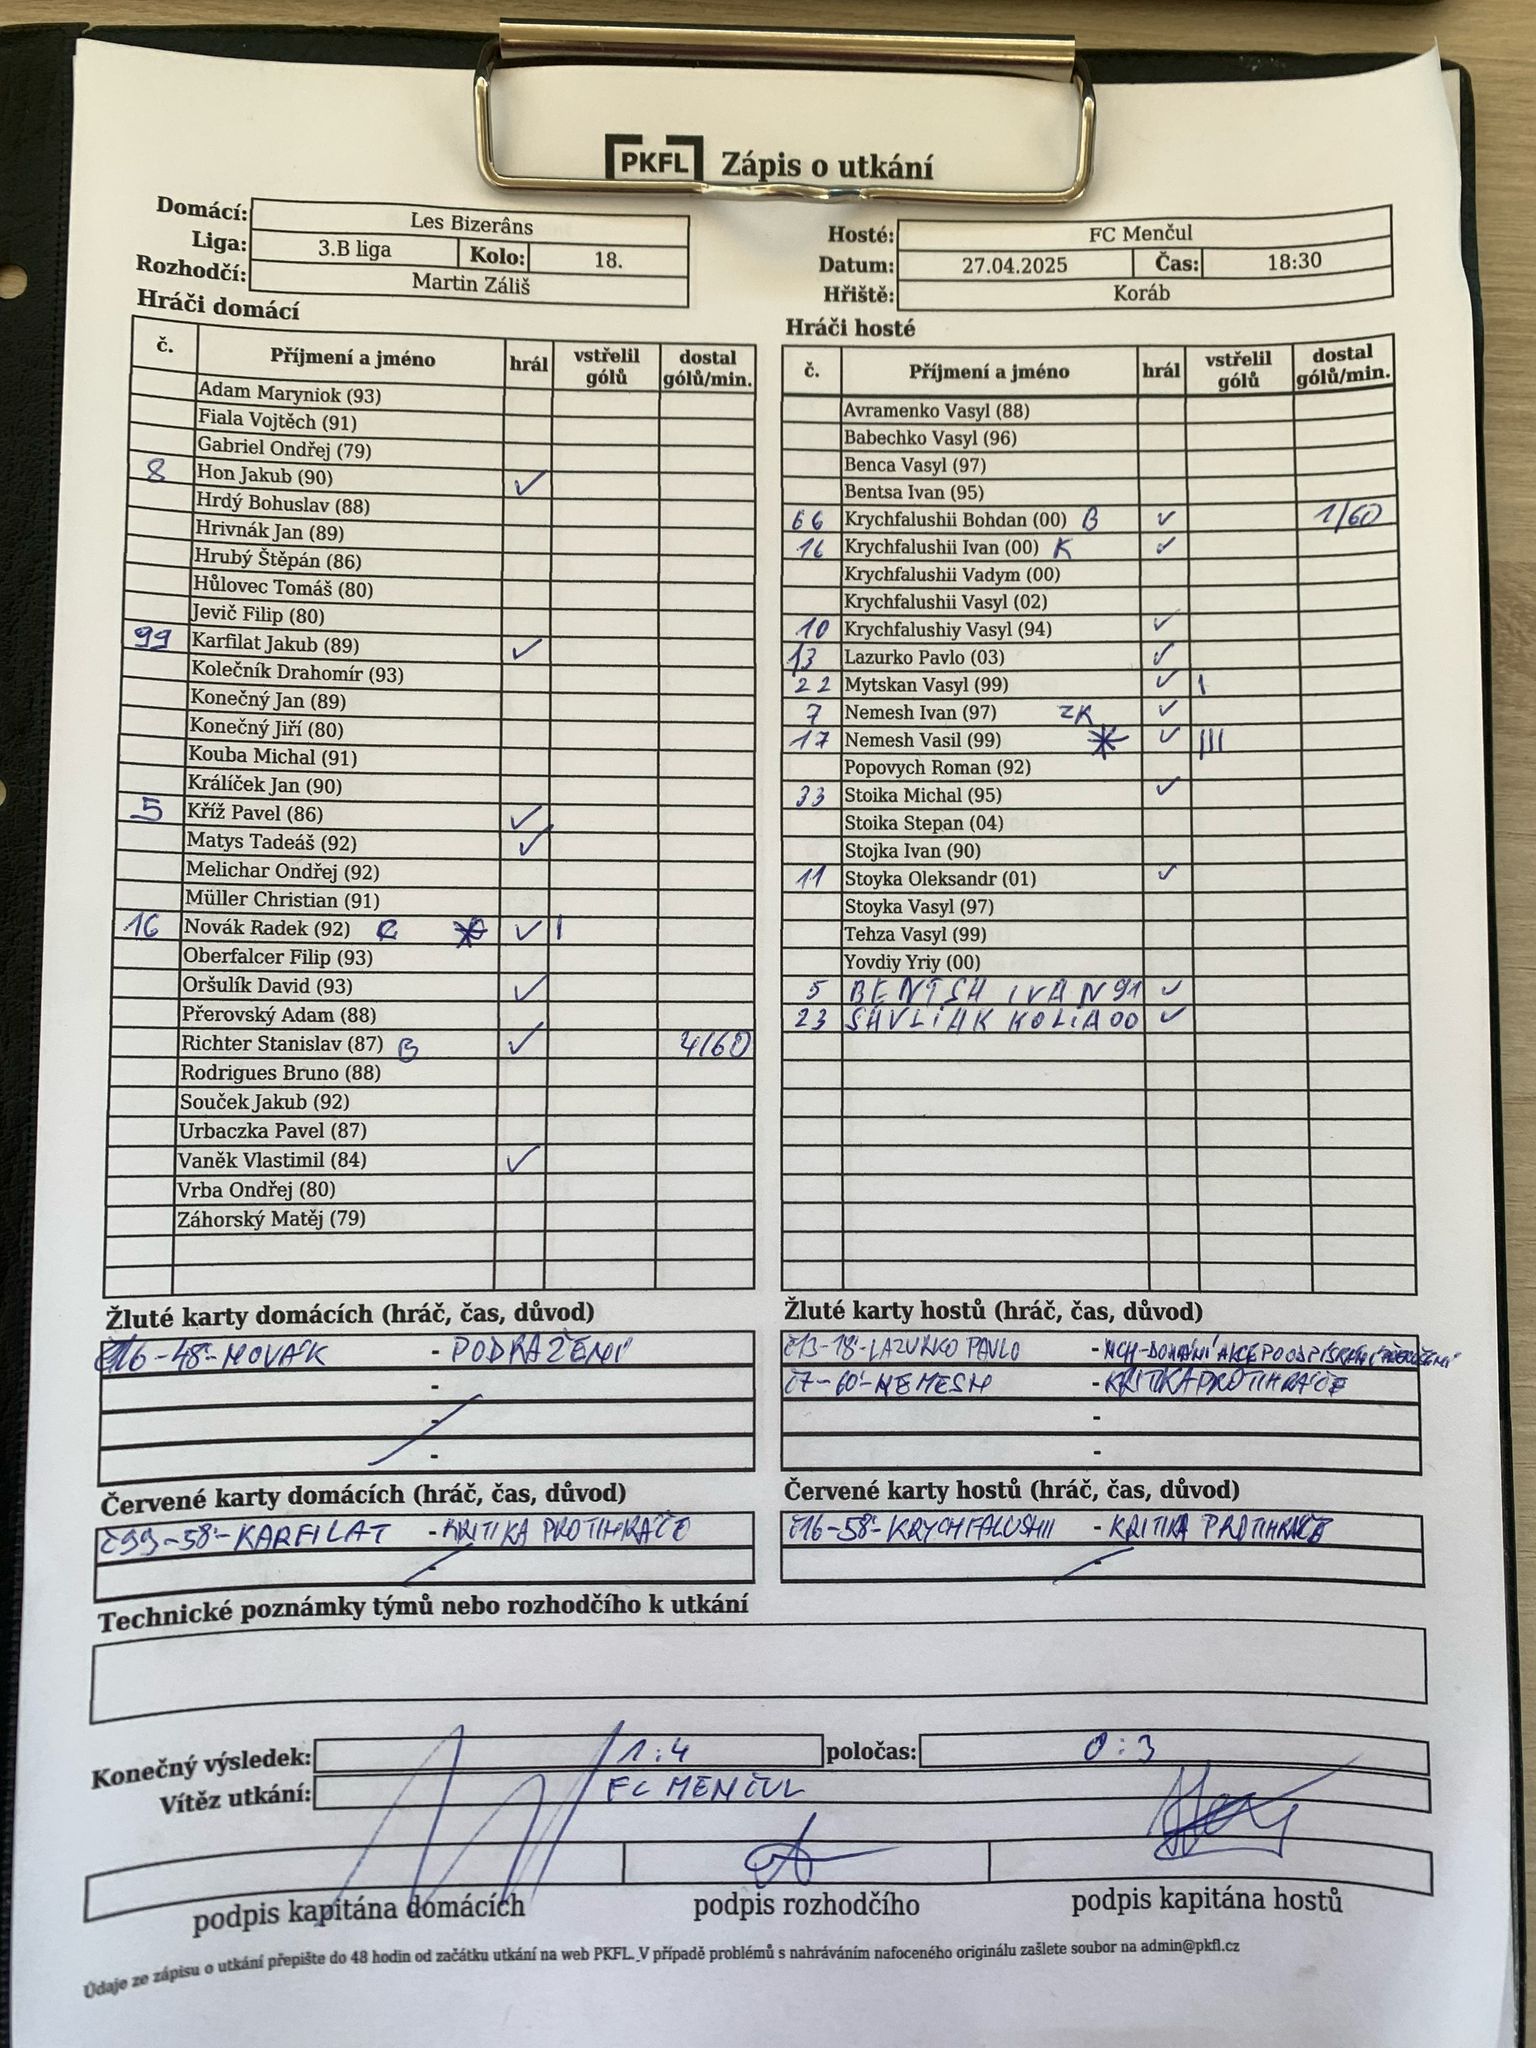 PKFL Zápis o utkání
Domácí: Les Bizerâns
Liga: 3.B liga Kolo: 18.
Rozhodčí: Martin Záliš
Hosté: FC Menčul
Datum: 27.04.2025 Čas: 18:30
Hřiště: Koráb
Hráči domácí
č. Příjmení a jméno hrál vstřelil gólů dostal gólů/min.
Adam Maryniok (93)
Fiala Vojtěch (91)
Gabriel Ondřej (79)
8 Hon Jakub (90) ✓
Hrdý Bohuslav (88)
Hrivnák Jan (89)
Hrubý Štěpán (86)
Hůlovec Tomáš (80)
Jevič Filip (80)
99 Karfilat Jakub (89) ✓
Kolečník Drahomír (93)
Konečný Jan (89)
Konečný Jiří (80)
Kouba Michal (91)
Králíček Jan (90)
5 Kříž Pavel (86) ✓
Matys Tadeáš (92) ✓
Melichar Ondřej (92)
Müller Christian (91)
16 Novák Radek (92) ✓ I
Oberfalcer Filip (93)
Oršulík David (93) ✓
Přerovský Adam (88)
Richter Stanislav (87) B ✓ 4/60
Rodrigues Bruno (88)
Souček Jakub (92)
Urbaczka Pavel (87)
Vaněk Vlastimil (84) ✓
Vrba Ondřej (80)
Záhorský Matěj (79)
Hráči hosté
č. Příjmení a jméno hrál vstřelil gólů dostal gólů/min.
Avramenko Vasyl (88)
Babechko Vasyl (96)
Benca Vasyl (97)
Bentsa Ivan (95)
66 Krychfalushii Bohdan (00) B ✓ 1/60
16 Krychfalushii Ivan (00) K ✓
Krychfalushii Vadym (00)
Krychfalushii Vasyl (02)
10 Krychfalushiy Vasyl (94) ✓
13 Lazurko Pavlo (03) ✓
22 Mytskan Vasyl (99) ✓ I
7 Nemesh Ivan (97) ZK ✓
17 Nemesh Vasil (99) * ✓ III
Popovych Roman (92)
33 Stoika Michal (95) ✓
Stoika Stepan (04)
Stojka Ivan (90)
11 Stoyka Oleksandr (01) ✓
Stoyka Vasyl (97)
Tehza Vasyl (99)
Yovdiy Yriy (00)
5 BENTSH IVAN 91 ✓
23 SHVLIAK KOLIA 00 ✓
Žluté karty domácích (hráč, čas, důvod)
č16-48'-NOVÁK - PODRAŽENÍ
-
-
-
Žluté karty hostů (hráč, čas, důvod)
č13-18'-LAZURKO PAVLO - NCH-
č7-60'-NEMESH - KRITIKA PROTIHRÁČE
-
-
Červené karty domácích (hráč, čas, důvod)
č99-58'-KARFILAT - KRITIKA PROTIHRÁČE
-
Červené karty hostů (hráč, čas, důvod)
č16-58'-KRYCHFALUSHII - KRITIKA PROTIHRÁČE
-
Technické poznámky týmů nebo rozhodčího k utkání
Konečný výsledek: 1:4 poločas: 0:3
Vítěz utkání: FC MENČUL
podpis kapitána domácích podpis rozhodčího podpis kapitána hostů
Údaje ze zápisu o utkání přepište do 48 hodin od začátku utkání na web PKFL. V případě problémů s nahráváním nafoceného originálu zašlete soubor na admin@pkfl.cz